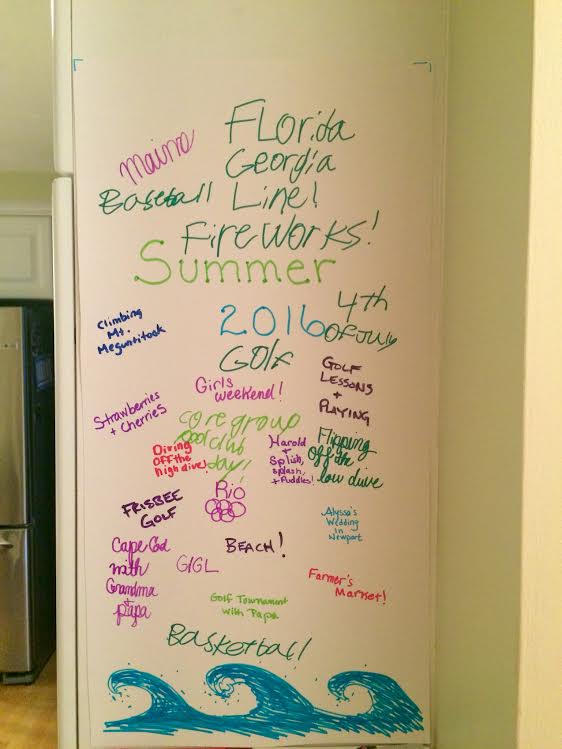 Florida
Georgia
Maine
Baseball Line!
Fireworks!
Summer
2016
4th
of July
Climbing
Mt.
Megunticook
Golf
GOLF
LESSONS
+
PLAYING
Girls
weekend!
Strawberries
+ Cherries
core group
pool club
day!
Diving
off the
high dive!
Harold
+
Splish,
splash,
+ Puddles!
Flipping
off the
low dive
Rio
FRISBEE
GOLF
Alyssa's
Wedding
in
Newport
Cape Cod
with
Grandma
+
papa
BEACH!
GIGL
Farmer's
Market!
Golf Tournament
with Papa
Basketball